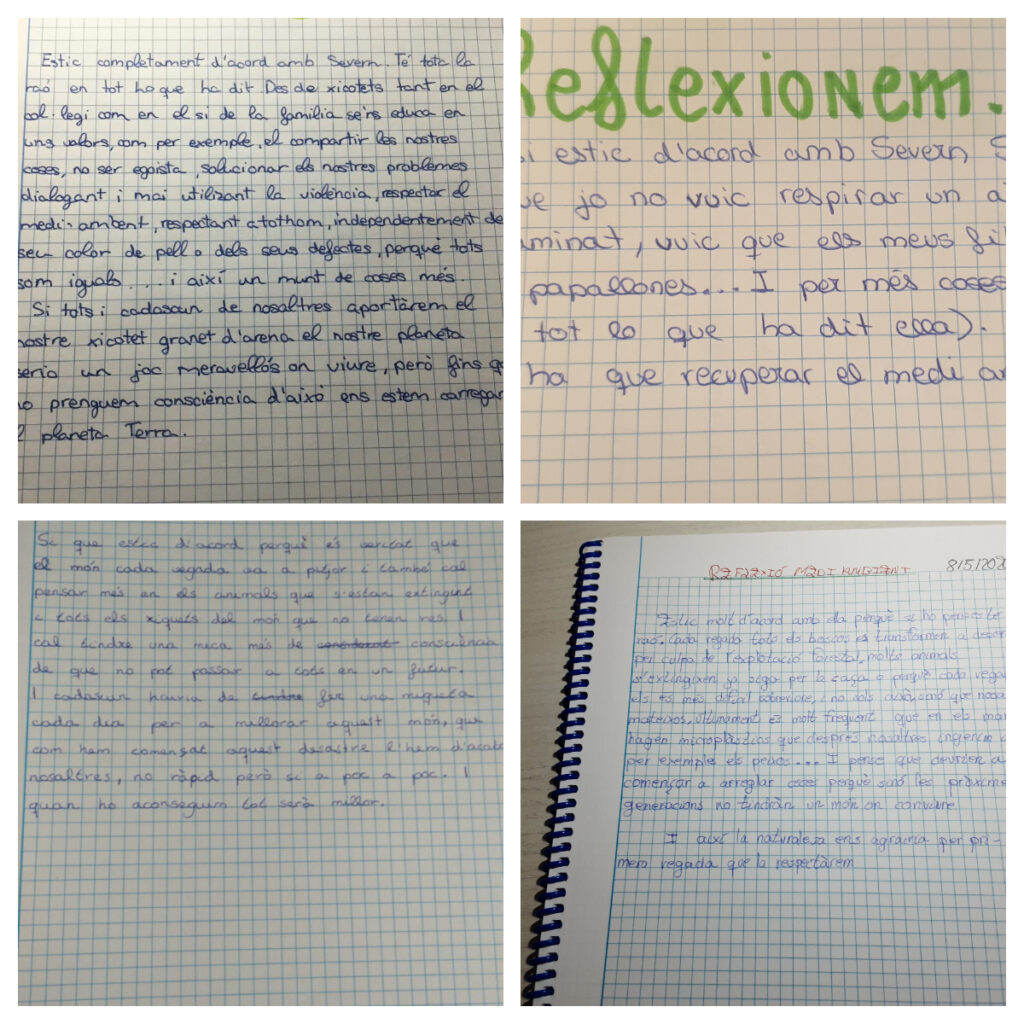 Estic completament d'acord amb Severn. Té tota la
raó en tot ho que ha dit. Des de xicotets tant en el
col·legi com en el si de la familia se'ns educa en
uns valors, com per exemple, el compartir les nostres
coses, no ser egoista, solucionar els nostres problemes
dialogant i mai utilizant la violència, respectar el
medi ambent, respectant a tothom, independentement de
seu color de pell o dels seus defectes, perquè tots
som iguals.... i així un munt de coses més.
Si tots i cadascun de nosaltres aportàrem el
nostre xicotet granet d'arena el nostre planeta
seria un joc meravellós on viure, però fins q
no prenguem consciència d'això ens estem carregar
l planeta Terra.
Reflexionem.
i estic d'acord amb Severn S
ue jo no vuic respirar un a
aminat, vuic que els meus fi
papallones... I per més coses
tot lo que ha dit ella).
ha que recuperar el medi am
Si que estic d'acord perquè és veritat que
el món cada vegada va a pitjor i també cal
pensar més en els animals que s'estan extingint
i tots els xiquets del món que no tenen res. I
cal tindre una mica més de consciència
de que no pot passar a tots en un futur.
I cadascun hauria de fer una miqueta
cada dia per a millorar aquest món, que
com hem començat aquest desastre l'hem d'acaba
nosaltres, no ràpid però si a poc a poc. I
quan ho aconseguim tot serà millor.
REFLEXIÓ MEDI AMBIENT 8/5/202
Estic molt d'acord amb ella perquè si ho penses te
raó. Cada vegada tots els boscos es transformen al desert
per culpa de l'explotació forestal, molts animals
s'extingixen ja siga per la caça o perquè cada vega
els es més difícil sobreviure, i no sols això, sinó que nosal
mateixos, ultimament es molt frequent que en els mar
hagen microplàstics que després nosaltres ingerim
per exemple els peixos... I pense que devríem
començar a arreglar coses perquè sinó les pròxime
generacions no tindràn un món on conviure.
I així la naturalesa ens agrairia per pri-
mera vegada que la respectàrem